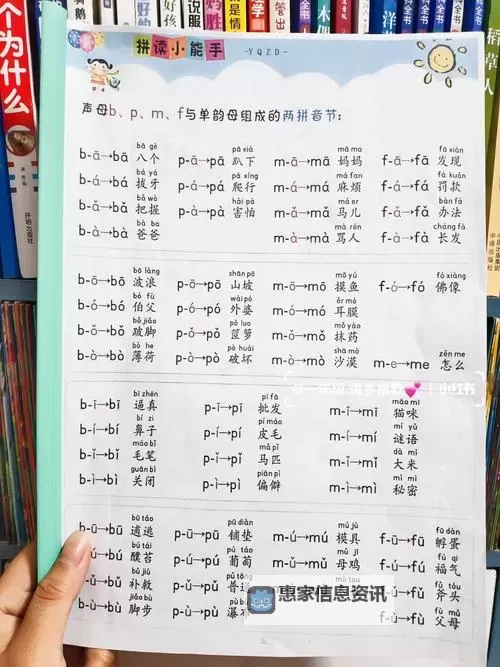 个为什么
开明出版社
稻草人
拼读小能手
-YQZD-
声母b、p、m、f与单韵母组成的两拼音节：
bā gè pā xià mā ma fā xiàn
b-ā→bā 八个 p-ā→pā 趴下 m-ā→mā 妈妈 f-ā→fā 发现
bá yá pá xíng má fan fá kuǎn
b-á→bá 拔牙 p-á→pá 爬行 m-á→má 麻烦 f-á→fá 罚款
bǎ wò hài pà mǎ er bàn fǎ
b-ǎ→bǎ 把握 p-à→pà 害怕 m-ǎ→mǎ 马儿 f-ǎ→fǎ 办法
bà ba mà rén cháng fà
b-à→bà 爸爸 m-à→mà 骂人 f-à→fà 长发
bō làng shān pō mō yú fó xiàng
b-ō→bō 波浪 p-ō→pō 山坡 m-ō→mō 摸鱼 f-ó→fó 佛像
bó fù wài pó ěr mó
b-ó→bó 伯父 p-ó→pó 外婆 m-ó→mó 耳膜
bǒ jiǎo pǒ luo mǒ yào
b-ǒ→bǒ 跛脚 p-ǒ→pǒ 笸箩 m-ǒ→mǒ 抹药
bò he pò huài shā mò zěn me
b-ò→bò 薄荷 p-ò→pò 破坏 m-ò→mò 沙漠 m-e→me 怎么
bī zhēn pī fā māo mī
b-ī→bī 逼真 p-ī→pī 批发 m-ī→mī 猫咪
bí zi pí máo mí yǔ
b-í→bí 鼻子 p-í→pí 皮毛 m-í→mí 谜语
máo bǐ mǎ pǐ dà mǐ
b-ǐ→bǐ 毛笔 p-ǐ→pǐ 马匹 m-ǐ→mǐ 大米
guān bì piān pì mì mì
b-ì→bì 关闭 p-ì→pì 偏僻 m-ì→mì 秘密
bū táo pū diàn mú jù fū dàn
b-ū→bū 逋逃 p-ū→pū 铺垫 m-ú→mú 模具 f-ū→fū 孵蛋
bú tái pú táo mǔ jī fú qì
-ú→bú 醭苔 p-ú→pú 葡萄 m-ǔ→mǔ 母鸡 f-ú→fú 福气
bǔ jiù pǔ tōng fǔ tóu
-ǔ→bǔ 补救 p-ǔ→pǔ 普通 斧头
jiǎo bù fù mǔ
b-ù→bù 脚步 p-ù→pù 瀑布 f-ù→fù 父母
惠家信息资讯
小红书